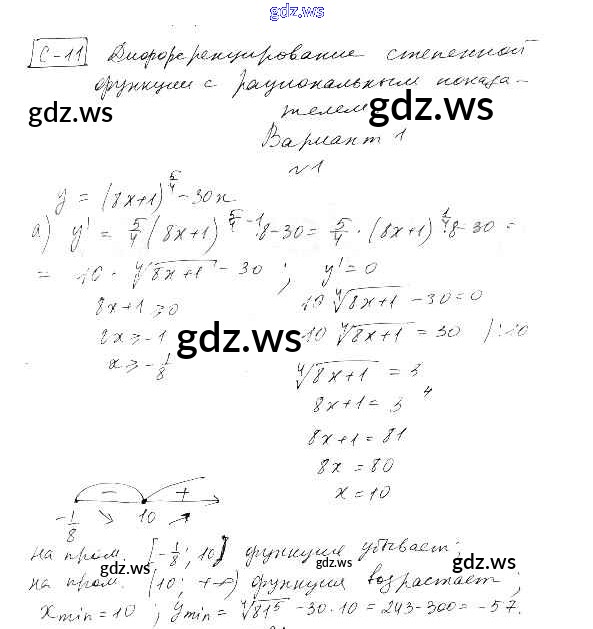 gdz.ws
С-11 Дифференцирование степенной
функции с рациональным показа-
телем
gdz.ws
gdz.ws
Вариант 1
№1
y = (8x+1)^{5/4} - 30x
а) y' = 5/4 (8x+1)^{5/4 - 1} · 8 - 30 = 5/4 · (8x+1)^{1/4} · 8 - 30 =
= 10 · ∜(8x+1) - 30 ; y' = 0
8x+1 ≥ 0
8x ≥ -1
x ≥ -1/8
10 ∜(8x+1) - 30 = 0
10 ∜(8x+1) = 30 /:10
gdz.ws
∜(8x+1) = 3
8x+1 = 3^4
8x+1 = 81
8x = 80
x = 10
− +
-1/8 ↘ 10 ↗
gdz.ws
gdz.ws
на пром. [-1/8; 10] функция убывает;
на пром. (10; +∞) функция возрастает;
x min = 10 ; y min = ∜(81^5) - 30·10 = 243 - 300 = -57.